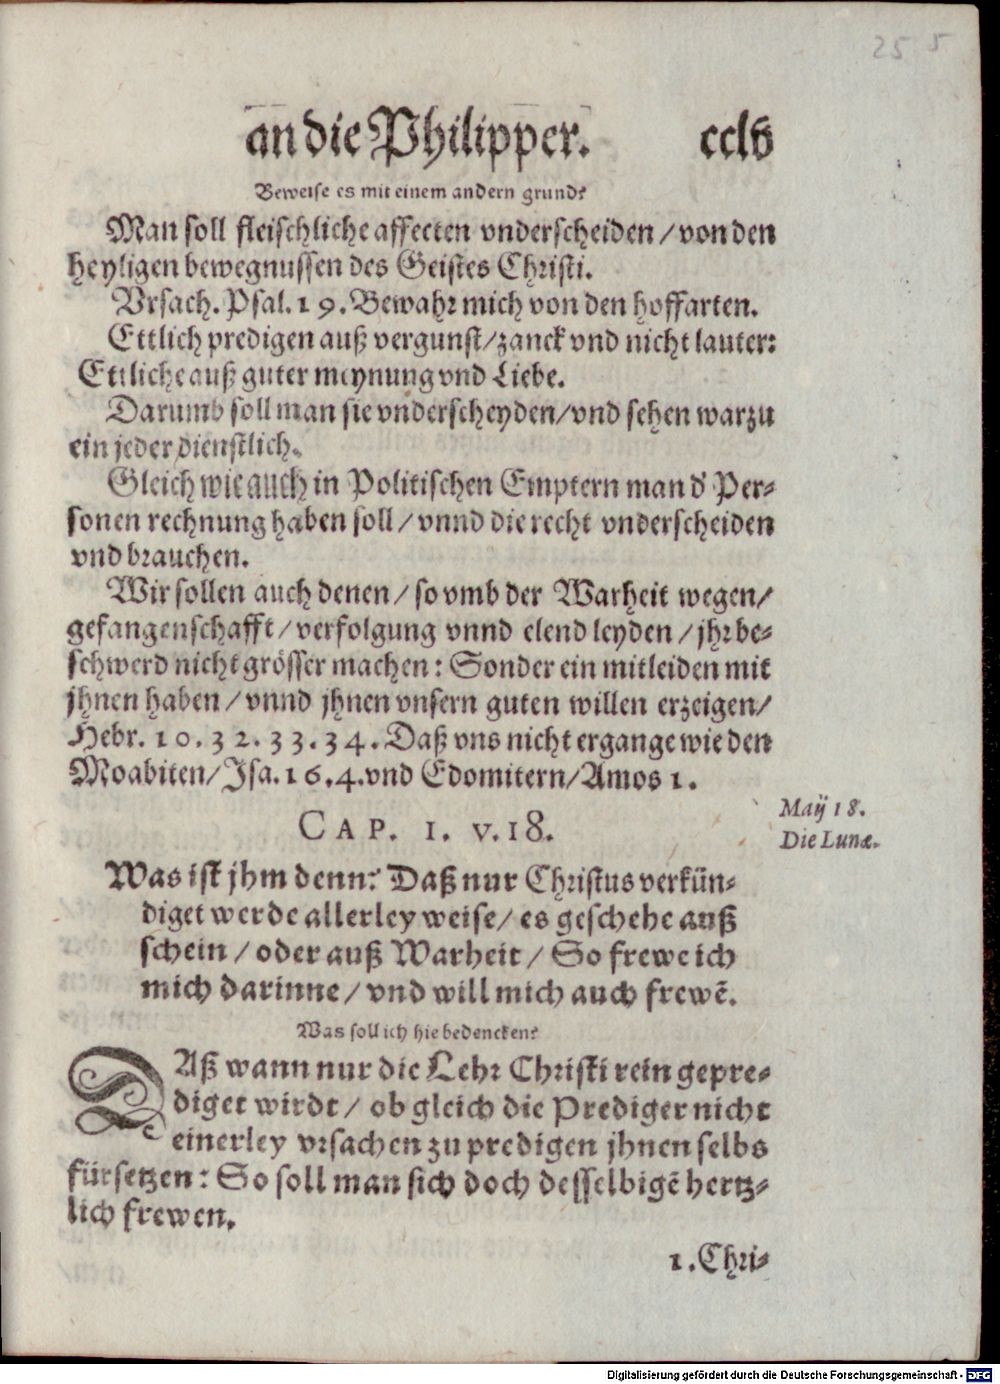 255
an die Philipper. cclv
Beweise es mit einem andern grund?
Man soll fleischliche affecten vnderscheiden / von den
heyligen bewegnussen des Geistes Christi.
Vrsach. Psal. 19. Bewahr mich von den hoffarten.
Ettlich predigen auß vergunst / zanck vnd nicht lauter:
Ettliche auß guter meynung vnd Liebe.
Darumb soll man sie vnderscheyden / vnd sehen warzu
ein jeder dienstlich.
Gleich wie auch in Politischen Emptern man d' Per-
sonen rechnung haben soll / vnnd die recht vnderscheiden
vnd brauchen.
Wir sollen auch denen / so vmb der Warheit wegen /
gefangenschafft / verfolgung vnnd elend leyden / jhr be-
schwerd nicht grösser machen: Sonder ein mitleiden mit
jhnen haben / vnnd jhnen vnsern guten willen erzeigen /
Hebr. 10. 32. 33. 34. Daß vns nicht ergange wie den
Moabiten / Jsa. 16. 4. vnd Edomitern / Amos 1.
Maÿ 18.
Die Lunæ.
CAP. 1. v. 18.
Was ist jhm denn? Daß nur Christus verkün-
diget werde allerley weise / es geschehe auß
schein / oder auß Warheit / So frewe ich
mich darinne / vnd will mich auch frewē.
Was soll ich hie bedencken?
DAß wann nur die Lehr Christi rein gepre-
diget wirdt / ob gleich die Prediger nicht
einerley vrsachen zu predigen jhnen selbs
fürsetzen: So soll man sich doch desselbigē hertz-
lich frewen.
1. Chri-
Digitalisierung gefördert durch die Deutsche Forschungsgemeinschaft - DFG